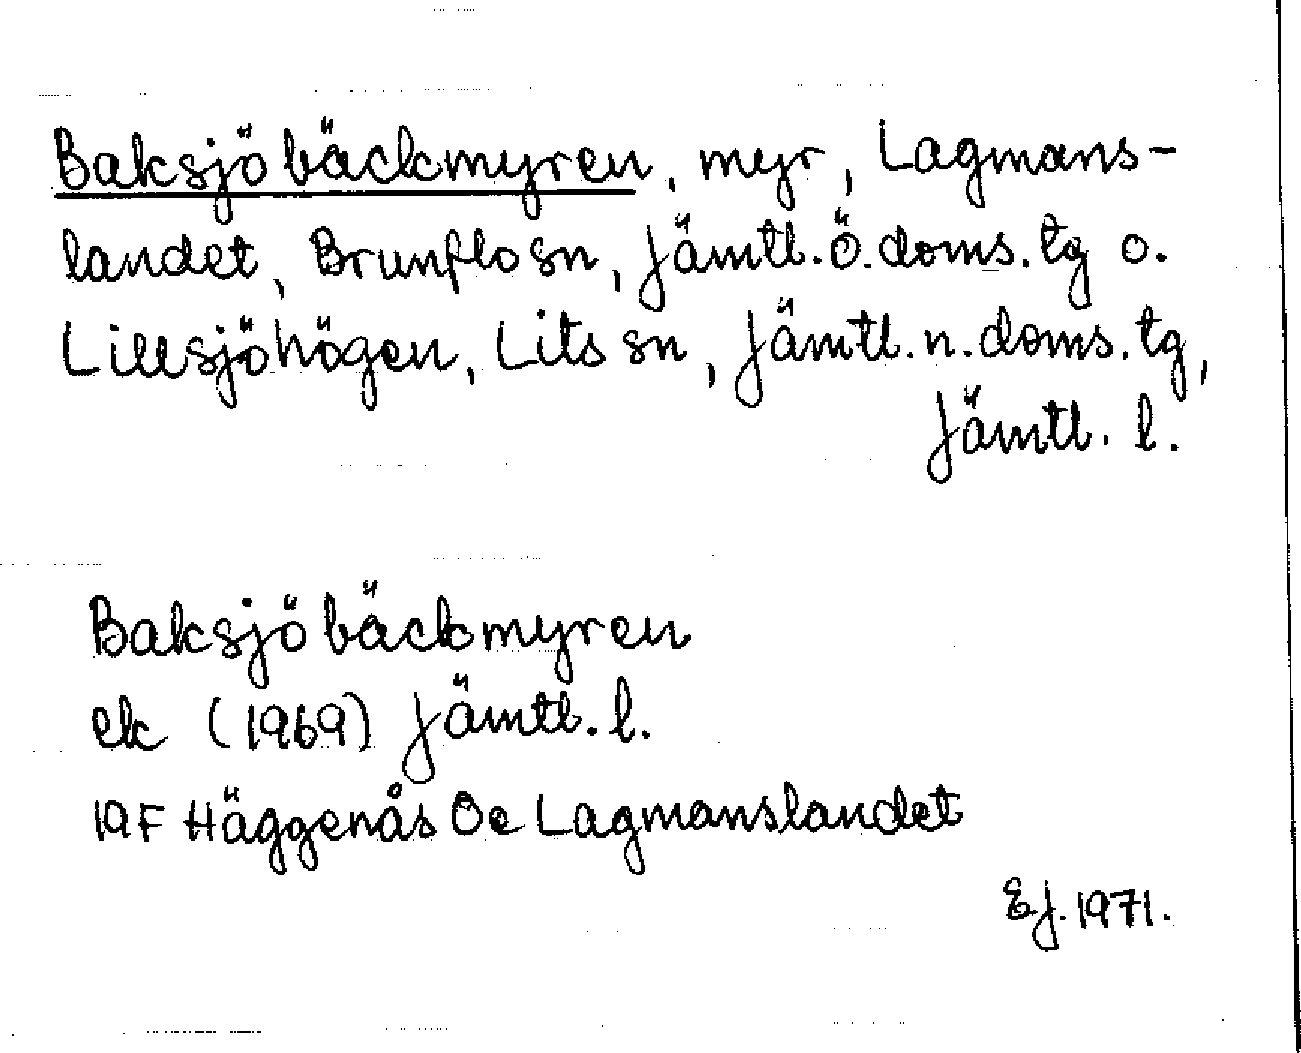 Baksjöbäckmyren, myr, Lagmans-
landet, Brunflo sn, Jämtl. ö. doms. tg o.
Lillsjöhögen, Lits sn, Jämtl. n. doms. tg,
Jämtl. l.
Baksjöbäckmyren
ek (1969) Jämtl. l.
19F Häggenås Oe Lagmanslandet
EJ. 1971.